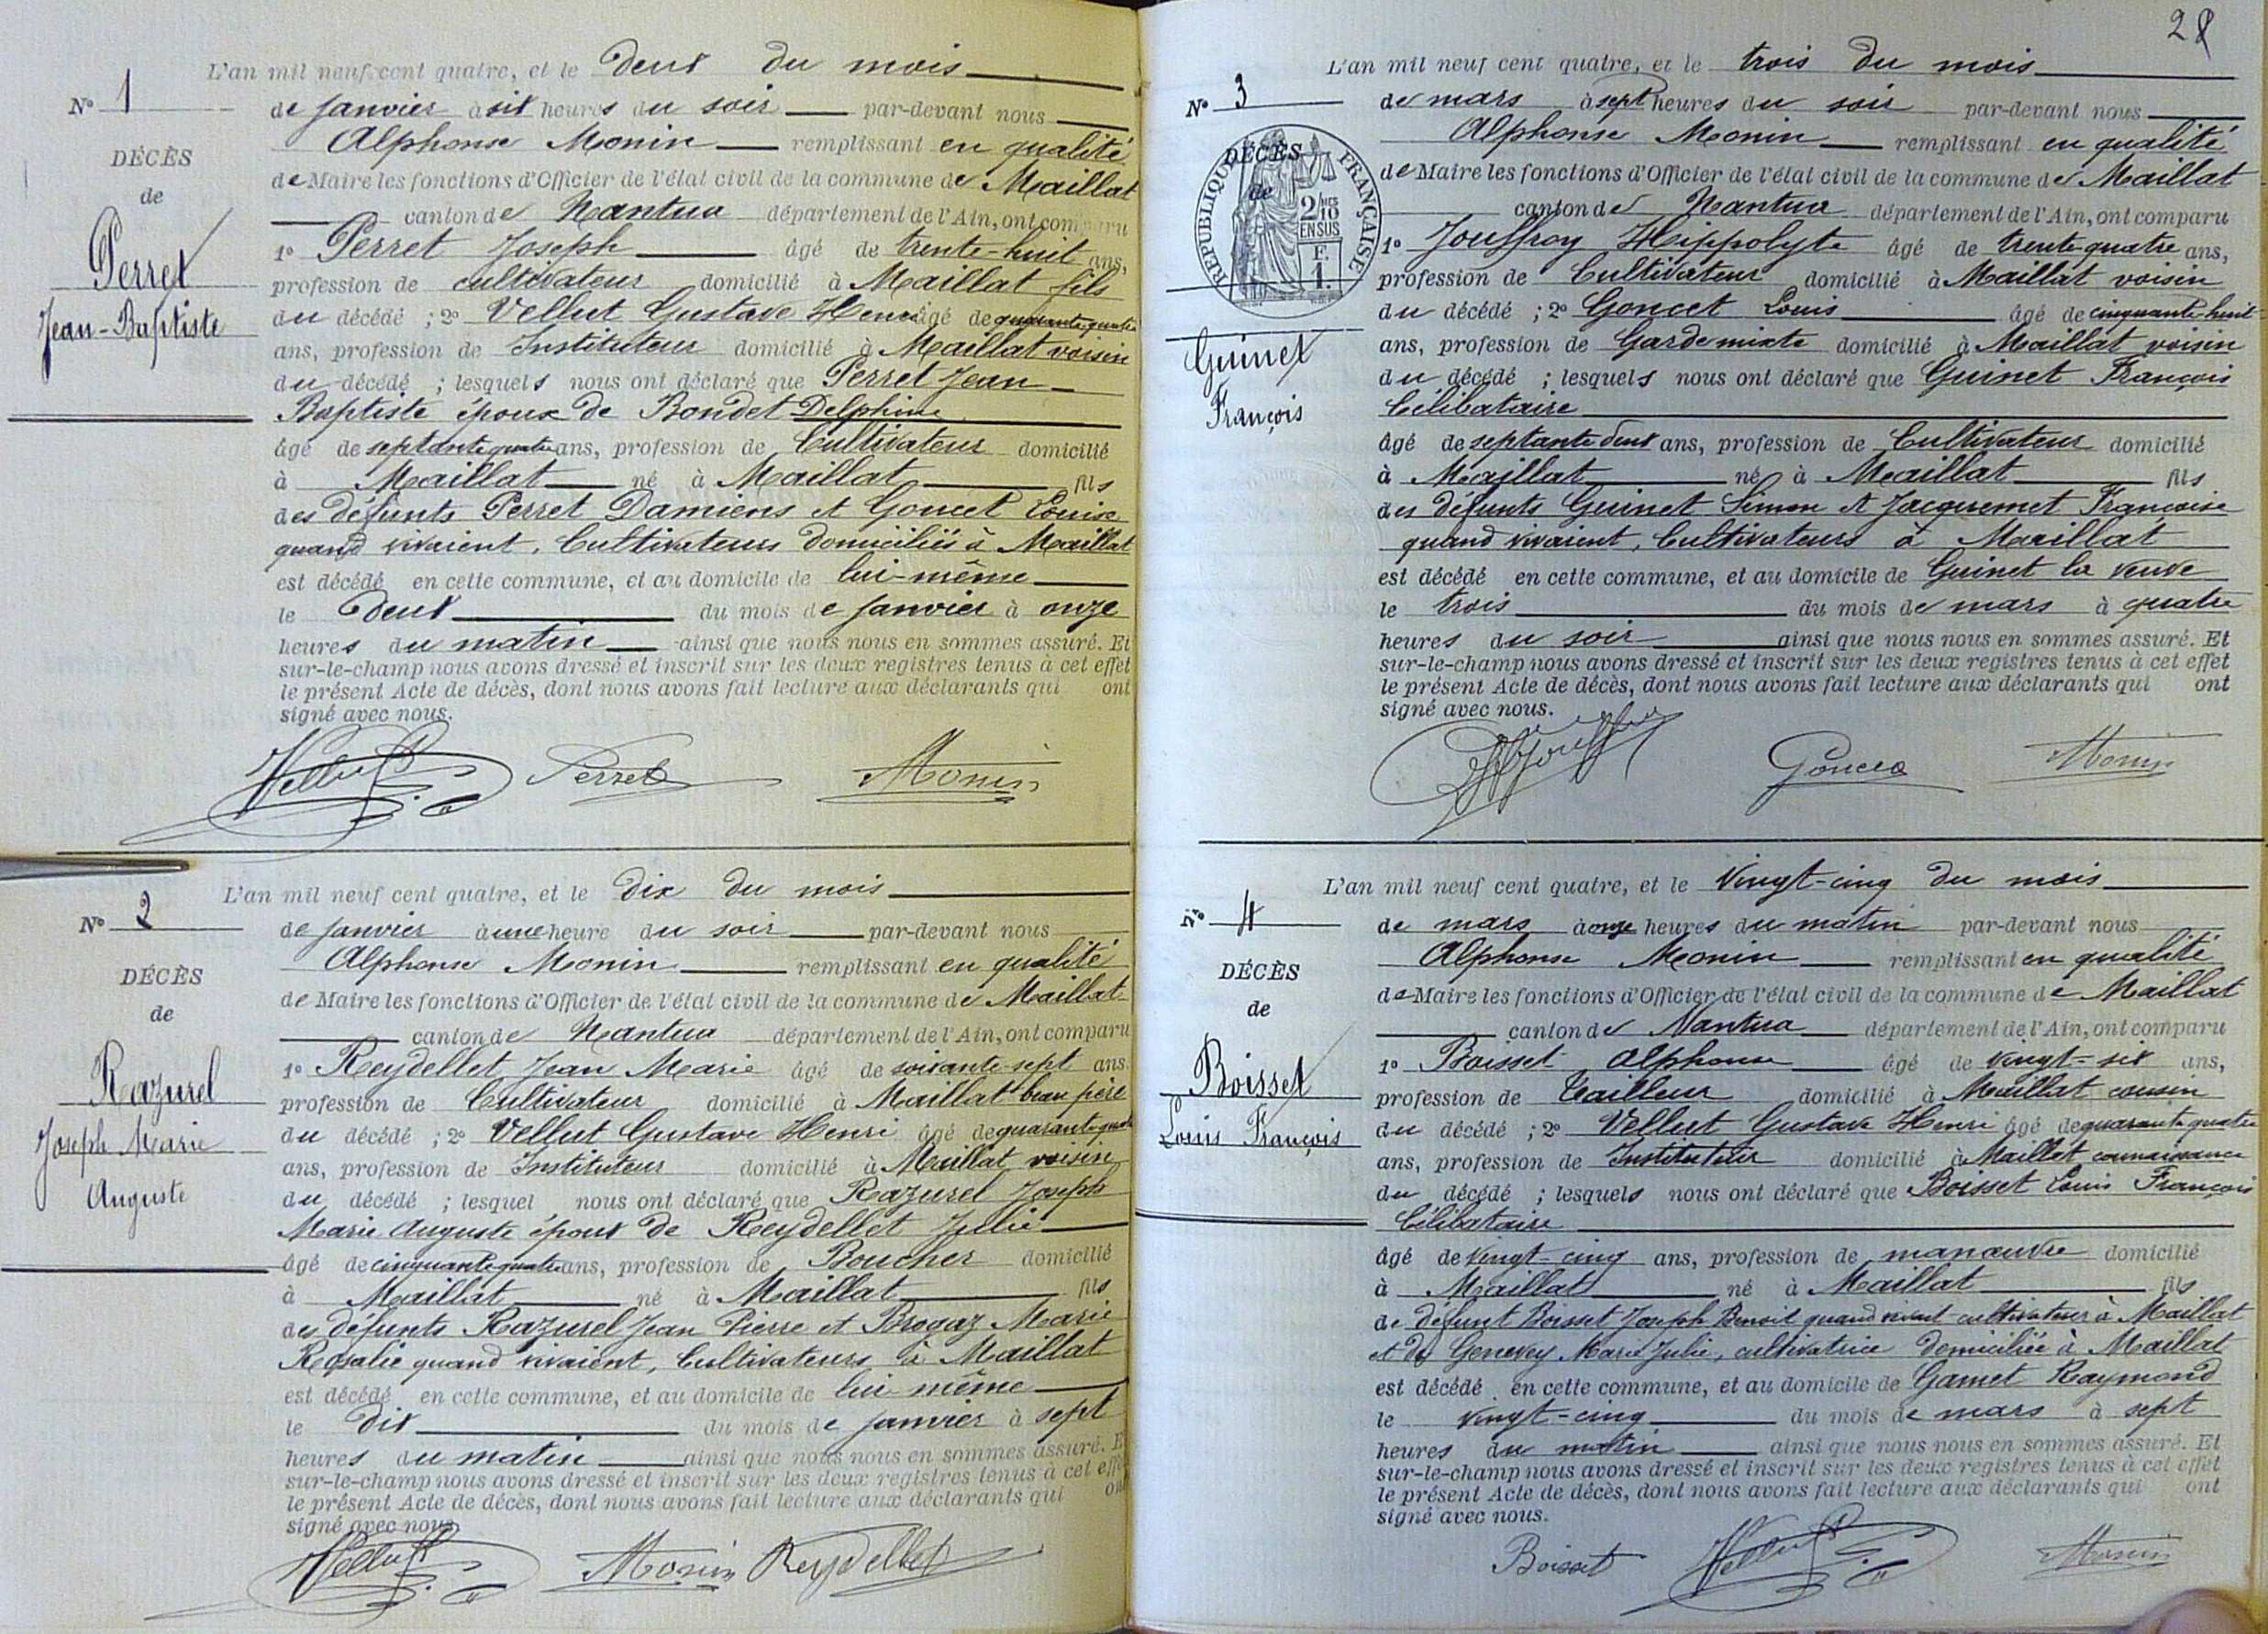 L'an mil neuf cent quatre, et le deux du mois
N° 1
de janvier à six heures du soir par-devant nous
Alphonse Monin remplissant en qualité
DÉCÈS
de Maire les fonctions d'Officier de l'état civil de la commune de Maillat
de
canton de Nantua département de l'Ain, ont comparu
Perret
Jean-Baptiste
1° Perret Joseph âgé de trente-huit ans,
profession de cultivateur domicilié à Maillat fils
du décédé ; 2° Vellut Gustave Henri âgé de quarante quatre
ans, profession de Instituteur domicilié à Maillat voisin
du décédé ; lesquels nous ont déclaré que Perret Jean
Baptiste époux de Bondet Delphine
âgé de septante quatre ans, profession de Cultivateur domicilié
à Maillat né à Maillat fils
des défunts Perret Damiens et Goncet Louise
quand vivaient, Cultivateurs domiciliés à Maillat
est décédé en cette commune, et au domicile de lui-même
le deux du mois de janvier à onze
heures du matin ainsi que nous nous en sommes assuré. Et
sur-le-champ nous avons dressé et inscrit sur les deux registres tenus à cet effet
le présent Acte de décès, dont nous avons fait lecture aux déclarants qui ont
signé avec nous.
Vellut Perret Monin
L'an mil neuf cent quatre, et le dix du mois
N° 2
de janvier à une heure du soir par-devant nous
Alphonse Monin remplissant en qualité
DÉCÈS
de Maire les fonctions d'Officier de l'état civil de la commune de Maillat
de
canton de Nantua département de l'Ain, ont comparu
Razurel
Joseph Marie
Auguste
1° Reydellet Jean Marie âgé de soixante-sept ans
profession de Cultivateur domicilié à Maillat beau père
du décédé ; 2° Vellut Gustave Henri âgé de quarante quatre
ans, profession de Instituteur domicilié à Maillat voisin
du décédé ; lesquel nous ont déclaré que Razurel Joseph
Marie Auguste époux de Reydellet Julie
âgé de cinquante quatre ans, profession de Boucher domicilié
à Maillat né à Maillat fils
des défunts Razurel Jean Pierre et Brogaz Marie
Rosalie quand vivaient, Cultivateurs à Maillat
est décédé en cette commune, et au domicile de lui-même
le dix du mois de janvier à sept
heures du matin ainsi que nous nous en sommes assuré. E
sur-le-champ nous avons dressé et inscrit sur les deux registres tenus à cet effe
le présent Acte de décès, dont nous avons fait lecture aux déclarants qui on
signé avec nous
Vellut Monin Reydellet
28
L'an mil neuf cent quatre, et le trois du mois
N° 3
de mars à sept heures du soir par-devant nous
Alphonse Monin remplissant en qualité
DÉCÈS
de Maire les fonctions d'Officier de l'état civil de la commune de Maillat
de
RÉPUBLIQUE FRANÇAISE
2/10 MES
EN SUS
F.
1.
canton de Nantua département de l'Ain, ont comparu
Guinet
François
1° Jouffroy Hippolyte âgé de trente-quatre ans,
profession de Cultivateur domicilié à Maillat voisin
du décédé ; 2° Goncet Louis âgé de cinquante-huit
ans, profession de Garde mixte domicilié à Maillat voisin
du décédé ; lesquels nous ont déclaré que Guinet François
Célibataire
âgé de septante deux ans, profession de Cultivateur domicilié
à Maillat né à Maillat fils
des défunts Guinet Simon et Jacquemet Françoise
quand vivaient, Cultivateurs à Maillat
est décédé en cette commune, et au domicile de Guinet la veuve
le trois du mois de mars à quatre
heures du soir ainsi que nous nous en sommes assuré. Et
sur-le-champ nous avons dressé et inscrit sur les deux registres tenus à cet effet
le présent Acte de décès, dont nous avons fait lecture aux déclarants qui ont
signé avec nous.
Goncet Monin
L'an mil neuf cent quatre, et le Vingt-cinq du mois
N° 4
de mars à onze heures du matin par-devant nous
Alphonse Monin remplissant en qualité
DÉCÈS
de Maire les fonctions d'Officier de l'état civil de la commune de Maillat
de
canton de Nantua département de l'Ain, ont comparu
Boisset
Louis François
1° Boisset Alphonse âgé de vingt-six ans,
profession de Tailleur domicilié à Maillat cousin
du décédé ; 2° Vellut Gustave Henri âgé de quarante quatre
ans, profession de Instituteur domicilié à Maillat connaissance
du décédé ; lesquels nous ont déclaré que Boisset Louis François
Célibataire
âgé de vingt-cinq ans, profession de manœuvre domicilié
à Maillat né à Maillat fils
de défunt Boisset Joseph Benoit quand vivait cultivateur à Maillat
et de Genevey Marie Julie, cultivatrice domiciliée à Maillat
est décédé en cette commune, et au domicile de Gamet Raymond
le vingt-cinq du mois de mars à sept
heures du matin ainsi que nous nous en sommes assuré. Et
sur-le-champ nous avons dressé et inscrit sur les deux registres tenus à cet effet
le présent Acte de décès, dont nous avons fait lecture aux déclarants qui ont
signé avec nous.
Boisset Vellut Monin